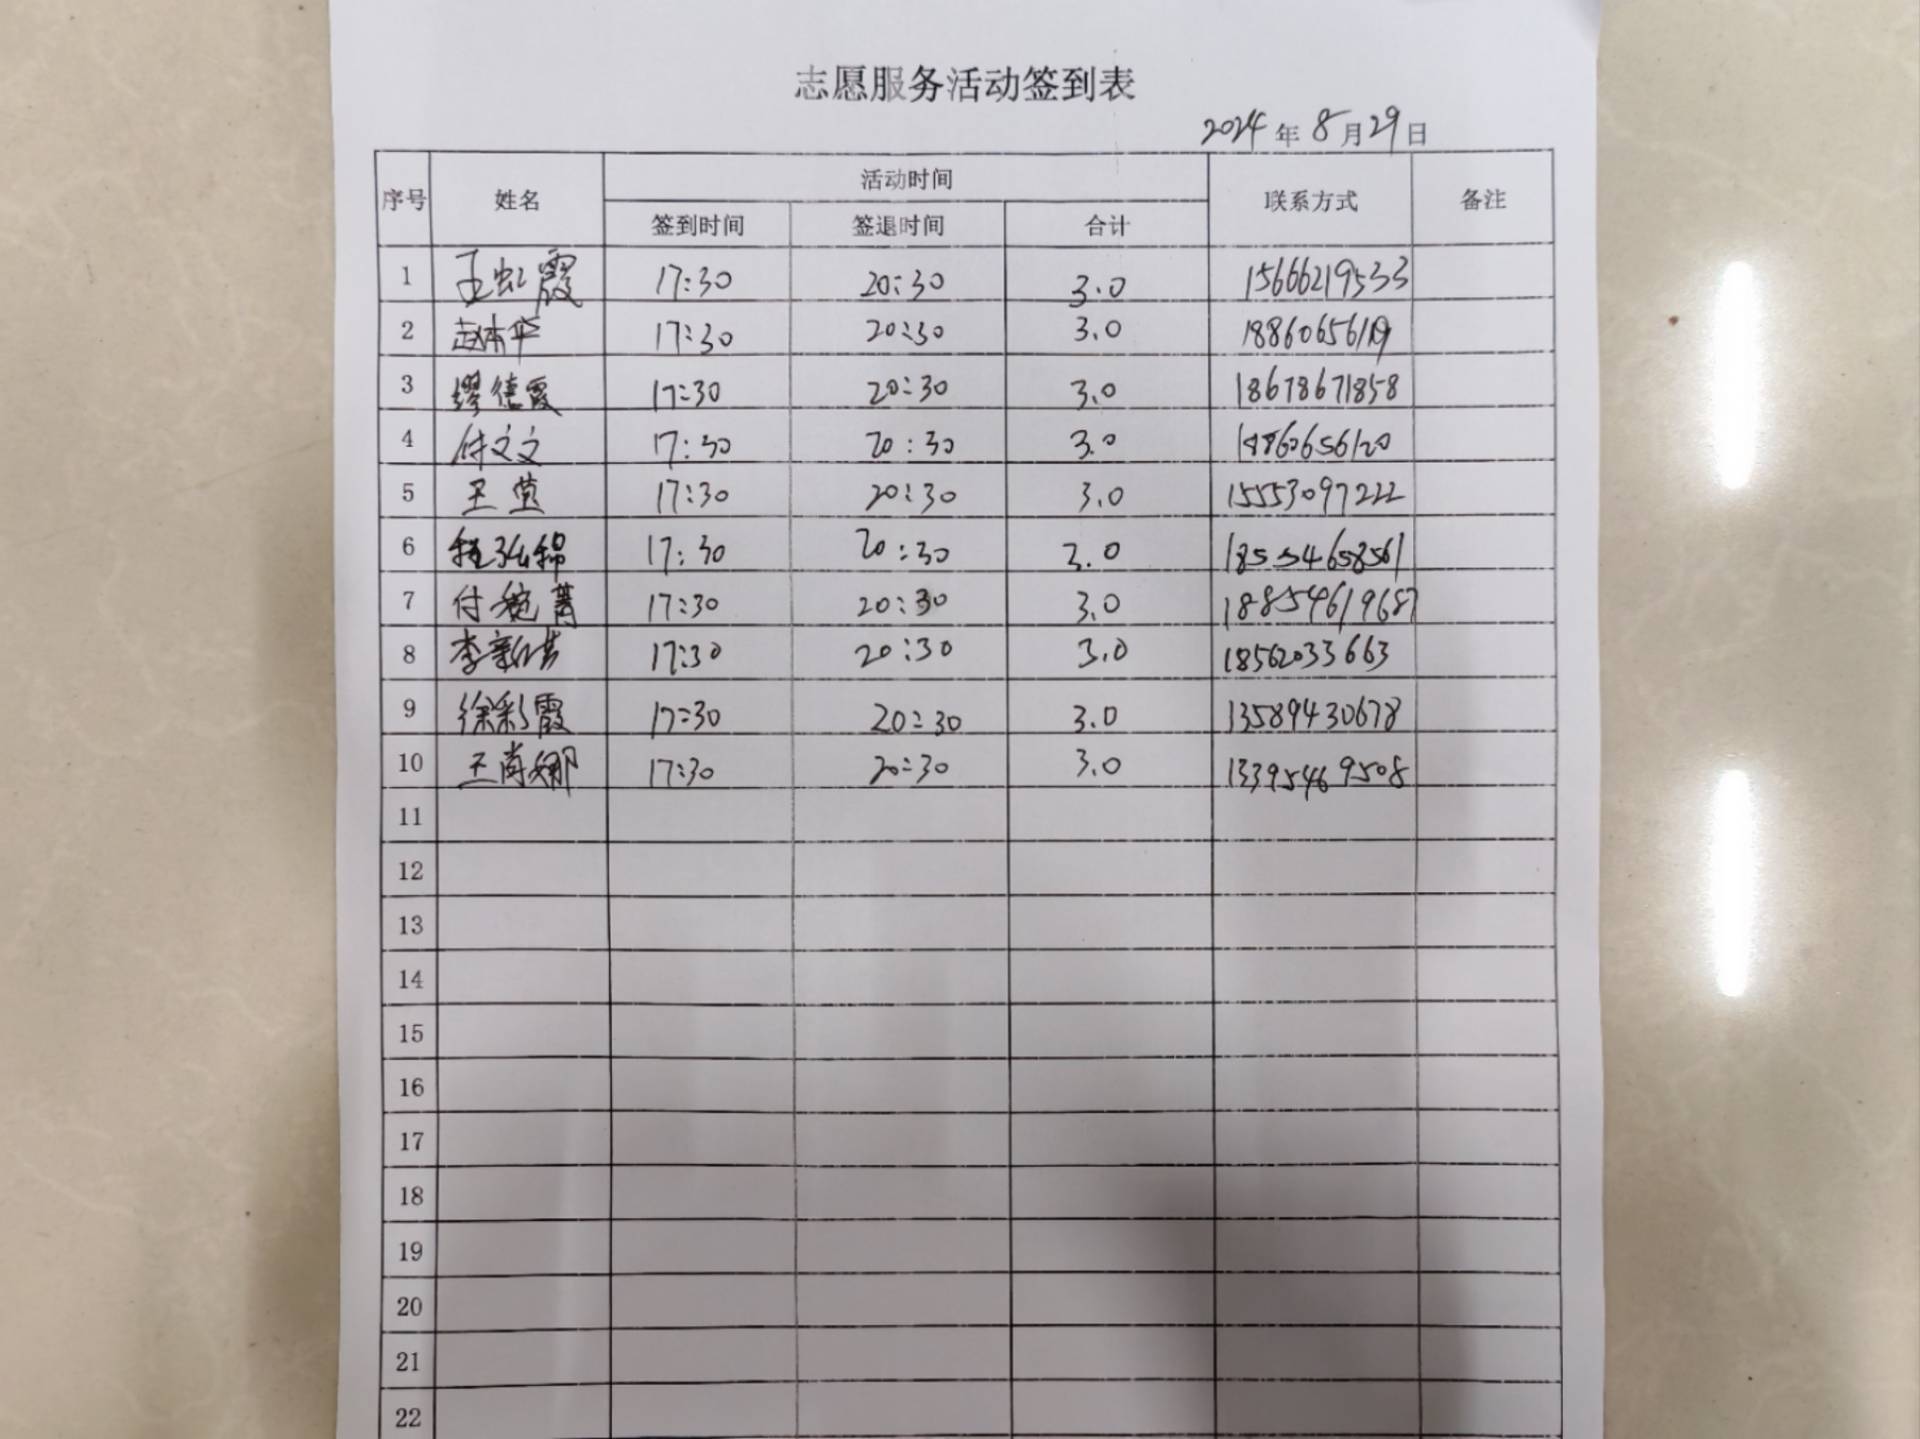 志愿服务活动签到表
2024年8月29日
序号 姓名 活动时间 联系方式 备注
签到时间 签退时间 合计
1 王虹霞 17:30 20:30 3.0 15666219533
2 赵本华 17:30 20:30 3.0 18860656119
3 缪德霞 17:30 20:30 3.0 18678671858
4 付文文 17:30 20:30 3.0 18860656120
5 王莹 17:30 20:30 3.0 15553097222
6 程弘锦 17:30 20:30 3.0 18554658561
7 付菁 17:30 20:30 3.0 18854619687
8 李新 17:30 20:30 3.0 18562033663
9 徐彩霞 17:30 20:30 3.0 13589430678
10 王肖娜 17:30 20:30 3.0 13395469508
11
12
13
14
15
16
17
18
19
20
21
22